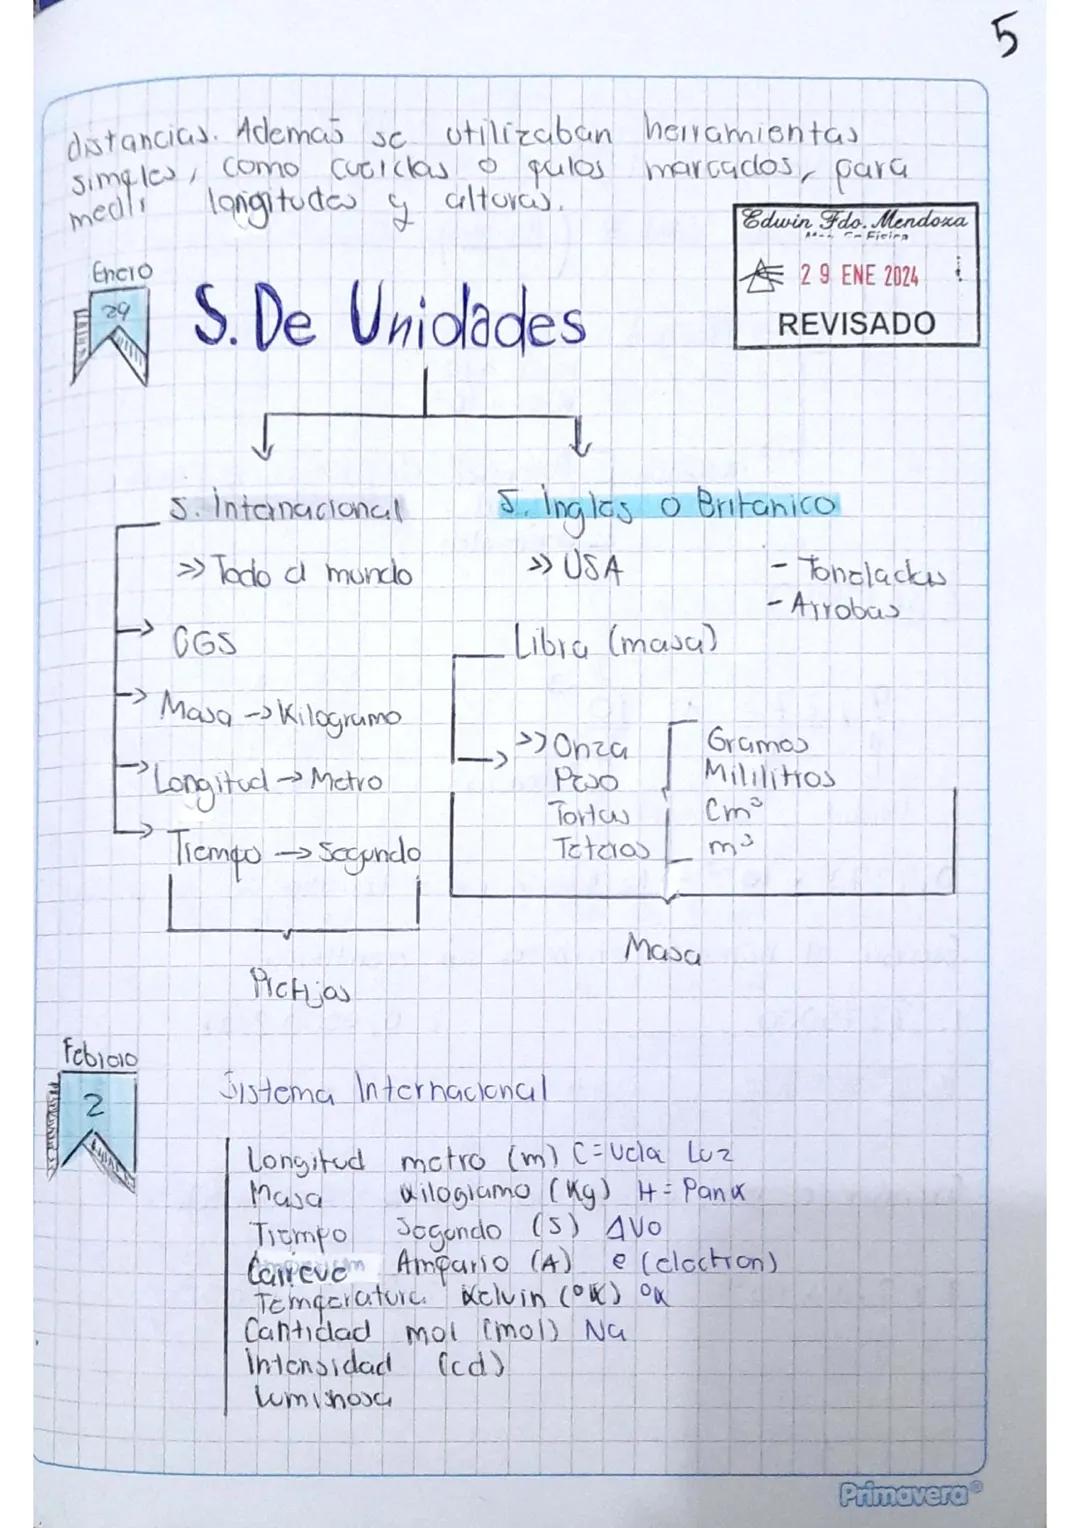 5
distancias. Ademas se utilizaban herramientas
simples, como cuerdas o palos marcados, para
medir longitudes y alturas.
Edwin Fdo. Mendoza
29 ENE 2024
REVISADO
Enero
29
S. De Unidades
S. Internacional
>> Todo el mundo
CGS
Masa -> Kilogramo
Longitud -> Metro
Tiempo -> Segundo
S. Ingles o Britanico
>> USA
- Toneladas
- Arrobas
Libra (masa)
>> Onza
Peso
Tortas
Teteros
Gramos
Mililitros
Cm³
m³
Masa
Febrero
2
Sistema Internacional
Longitud metro (m) C = Vela Luz
Masa Kilogramo (Kg) H = Pank
Tiempo Segundo (S) ΔVo
Amperio (A) e (electron)
Temperatura Kelvin (°K) °K
Cantidad mol (mol) Na
Intensidad (cd)
luminosa
Primavera®